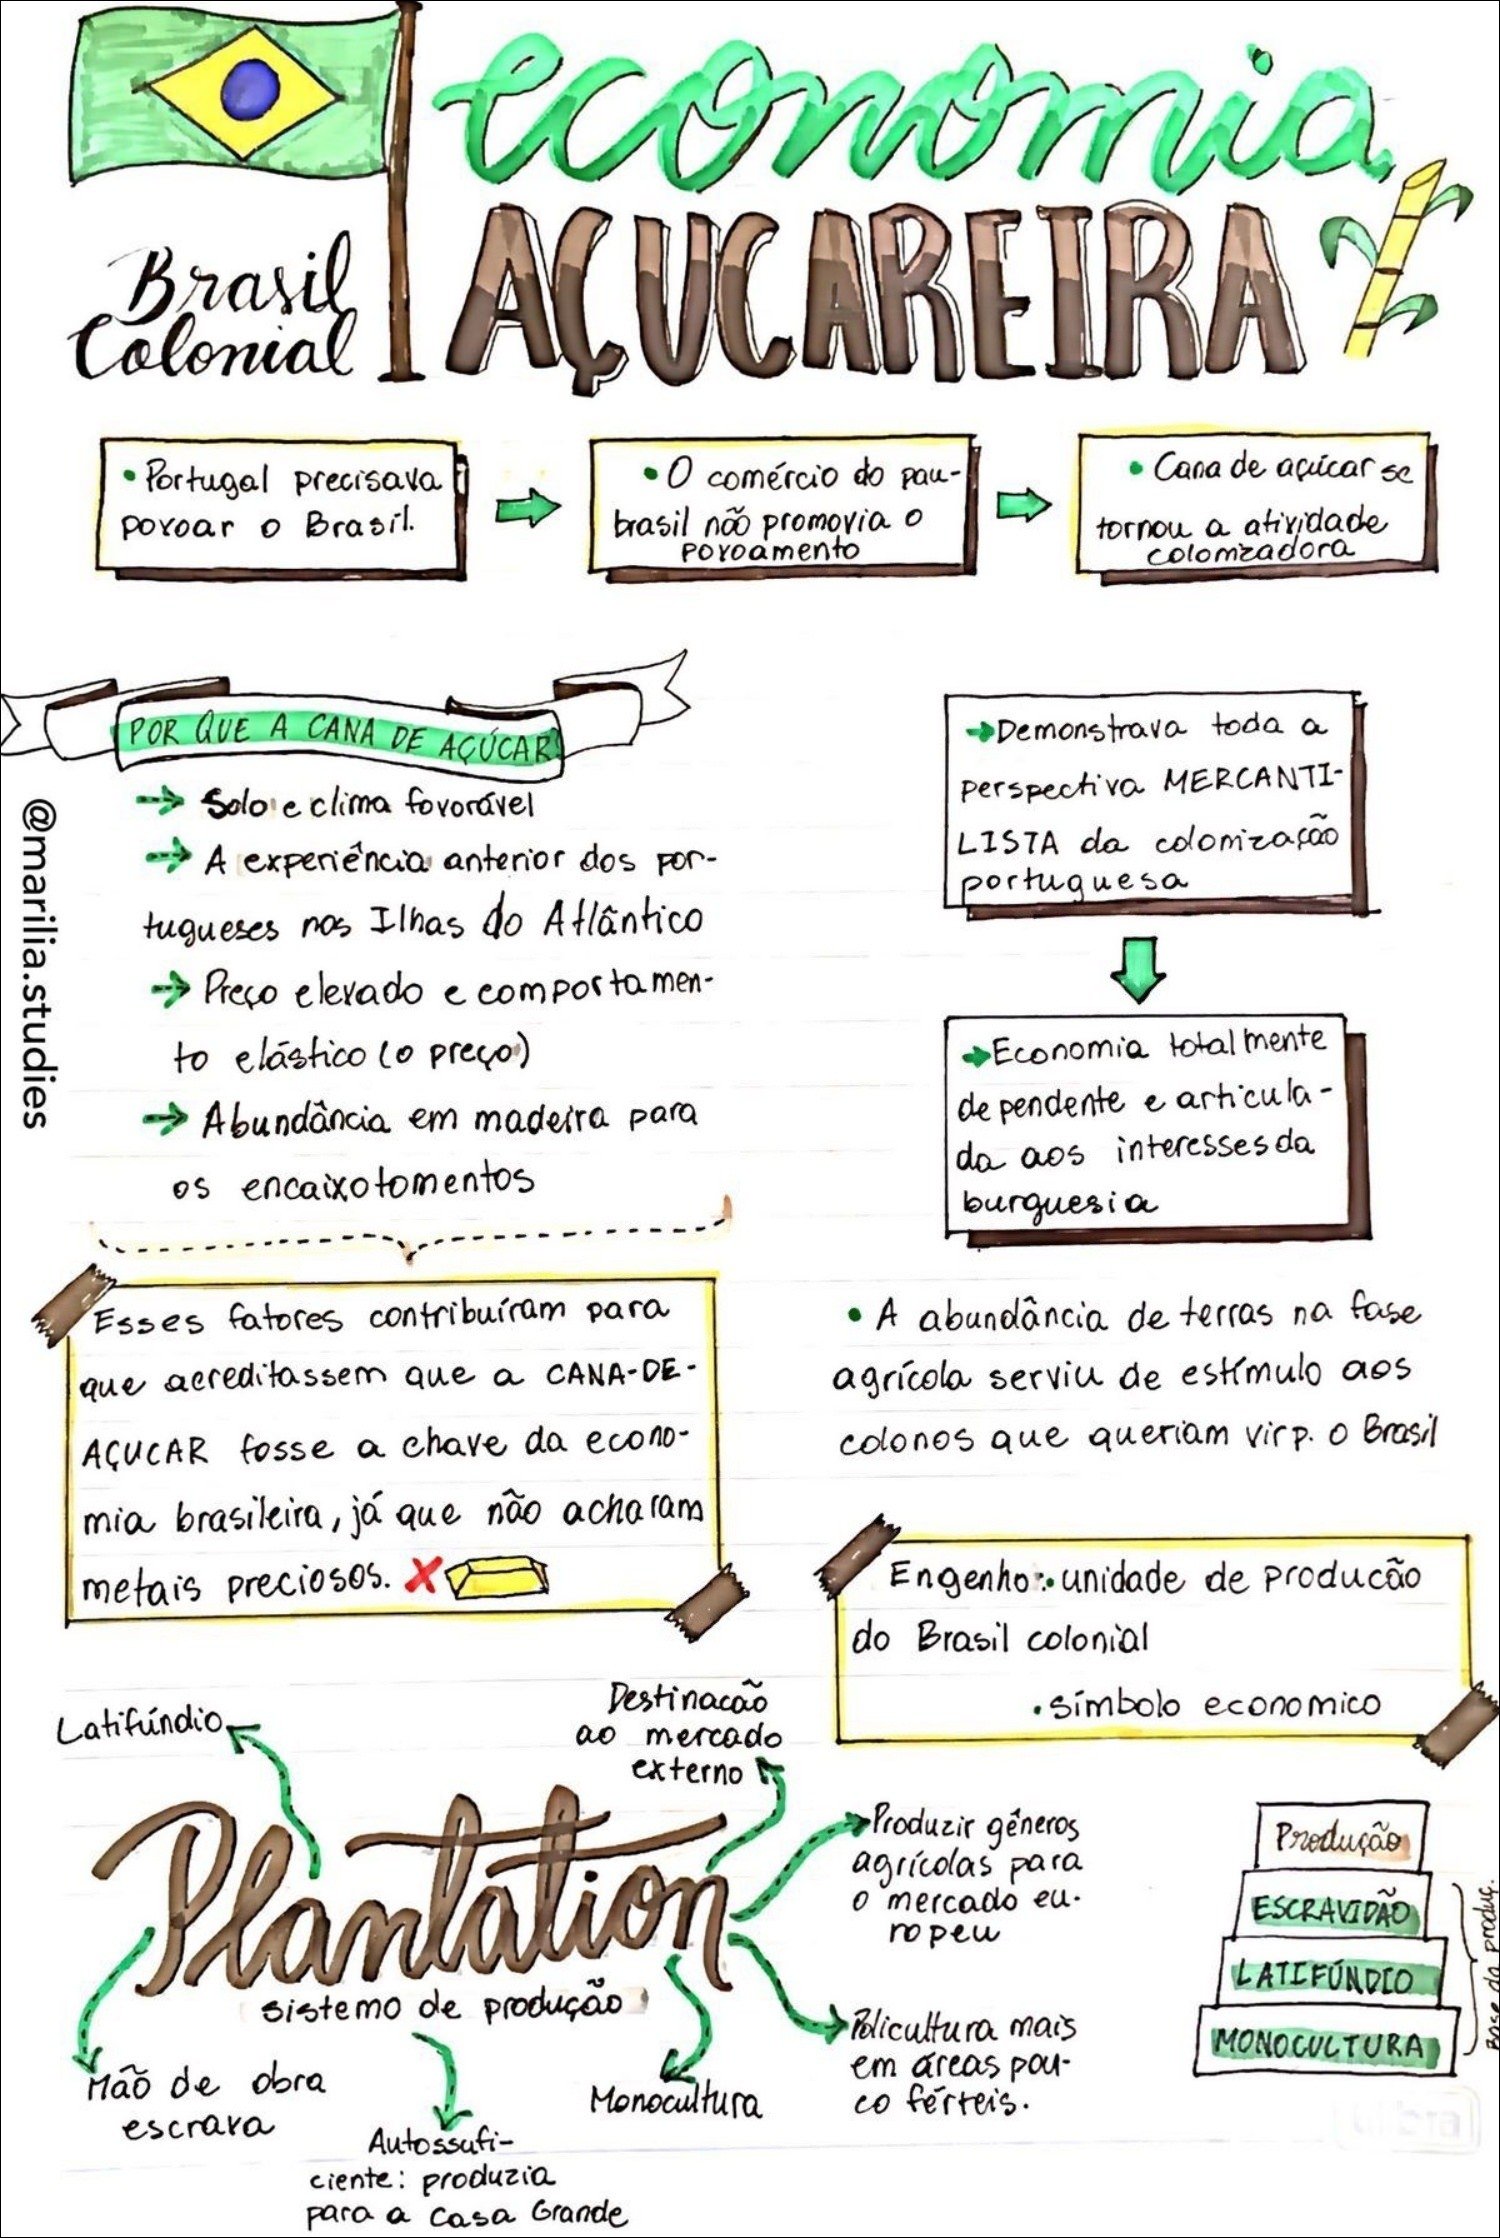 economia
AÇUCAREIRA
Brasil
Colonial
• Portugal precisava
povoar o Brasil.
• O comércio do pau-
brasil não promovia o
povoamento
• Cana de açúcar se
tornou a atividade
colonizadora
POR QUE A CANA DE AÇÚCAR?
→ Solo e clima favorável
→ A experiência anterior dos por-
tugueses nas Ilhas do Atlântico
→ Preço elevado e comportamen-
to elástico (o preço)
→ Abundância em madeira para
os encaixotamentos
@marilia.studies
→ Demonstrava toda a
perspectiva MERCANTI-
LISTA da colonização
portuguesa
→ Economia totalmente
dependente e articula-
da aos interesses da
burguesia
Esses fatores contribuíram para
que acreditassem que a CANA-DE-
AÇUCAR fosse a chave da econo-
mia brasileira, já que não acharam
metais preciosos.
• A abundância de terras na fase
agrícola serviu de estímulo aos
colonos que queriam vir p. o Brasil
Engenho: unidade de producão
do Brasil colonial
• símbolo economico
Latifúndio
Destinacão
ao mercado
externo
Plantation
sistema de produção
Produzir gêneros
agrícolas para
o mercado eu-
ropeu
Policultura mais
em áreas pou-
co férteis.
Mão de obra
escrava
Autossufi-
ciente: produzia
para a Casa Grande
Monocultura
Produção
ESCRAVIDÃO
LATIFÚNDIO
MONOCULTURA
Base da produç.